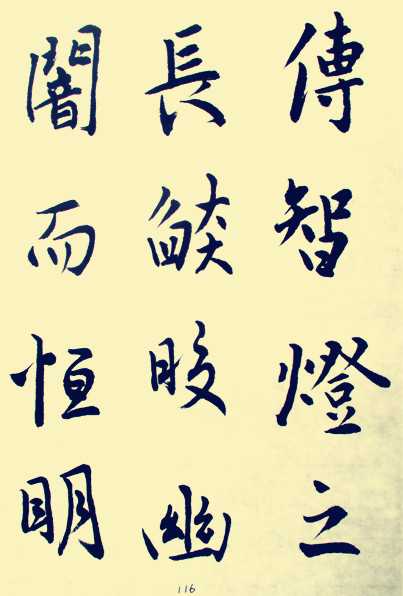 傳智燈之
長燄皎幽
闇而恒明
116